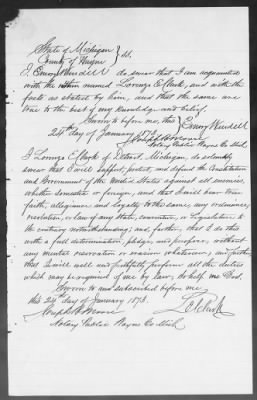 State of Michigan } ss.
County of Wayne
I, Emory Wendell do swear that I am acquainted
with the within named Lorenzo E. Clark, and with the
facts as stated by him, and that the same are
true to the best of my knowledge and belief.
Sworn to before me, this } Emory Wendell
24th day of January 1873.
Notary Public Wayne Co Mich.
I Lorenzo E. Clark of Detroit, Michigan, do solemnly
swear that I will support, protect, and defend the Constitution
and Government of the United States against all enemies,
whether domestic or foreign; and that I will bear true
faith, allegiance, and loyalty to the same, any ordinance,
resolution, or law of any State, convention, or Legislature to
the contrary notwithstanding; and, further, that I do this
with a full determination, pledge, and purpose, without
any mental reservation or evasion whatsoever; and, further,
that I will well and faithfully perform all the duties
which may be required of me by law; So help me God.
Sworn to and subscribed before me
this 24th day of January 1873. L E Clark
Notary Public Wayne Co Mich